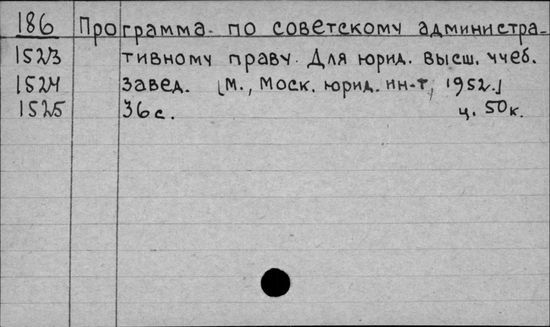 186 Программа по советскому администра-
1523 тивному праву. Для юрид. высш. учеб.
1524 завед. [М., Моск. юрид. ин-т, 1952.]
1525 36 с. ц. 50 к.